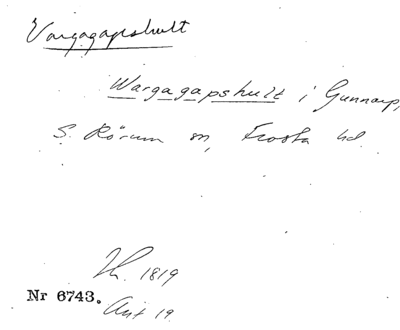 Vargagapshult
Wargagapshult i Gunnarp,
S. Rörum sn, Frosta hd.
Th. 1819
Nr 6743.
Ant 19